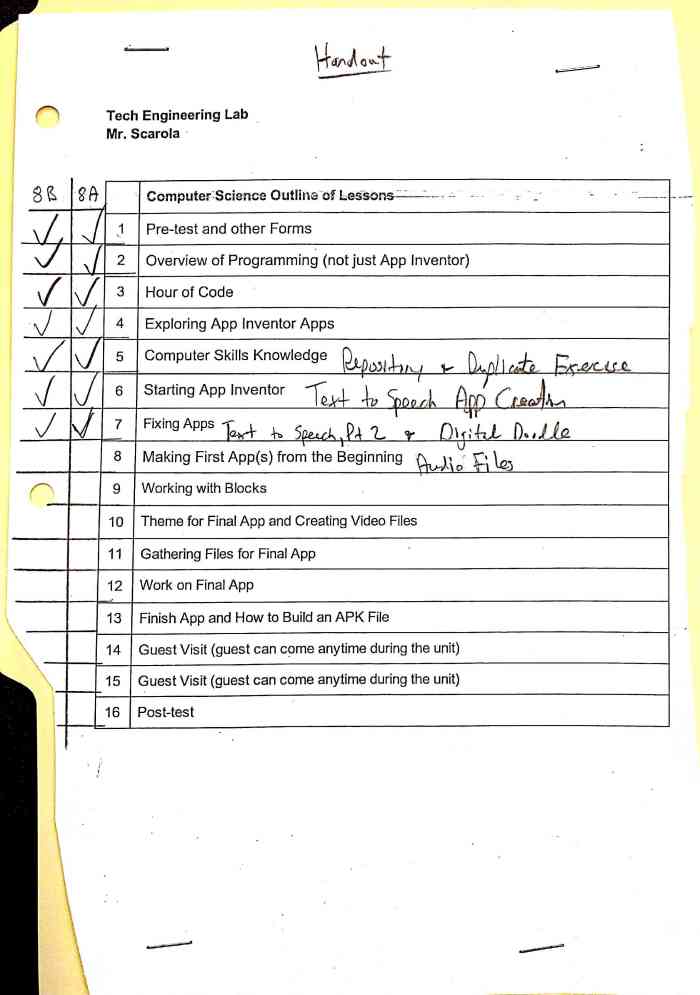 Handout
Tech Engineering Lab
Mr. Scarola
8B 8A Computer Science Outline of Lessons
✓ ✓ 1 Pre-test and other Forms
✓ ✓ 2 Overview of Programming (not just App Inventor)
✓ ✓ 3 Hour of Code
✓ ✓ 4 Exploring App Inventor Apps
✓ ✓ 5 Computer Skills Knowledge Repository & Duplicate Exercise
✓ ✓ 6 Starting App Inventor Text to Speech App Creation
✓ ✓ 7 Fixing Apps Text to Speech, Pt 2 & Digital Doodle
8 Making First App(s) from the Beginning Audio Files
9 Working with Blocks
10 Theme for Final App and Creating Video Files
11 Gathering Files for Final App
12 Work on Final App
13 Finish App and How to Build an APK File
14 Guest Visit (guest can come anytime during the unit)
15 Guest Visit (guest can come anytime during the unit)
16 Post-test